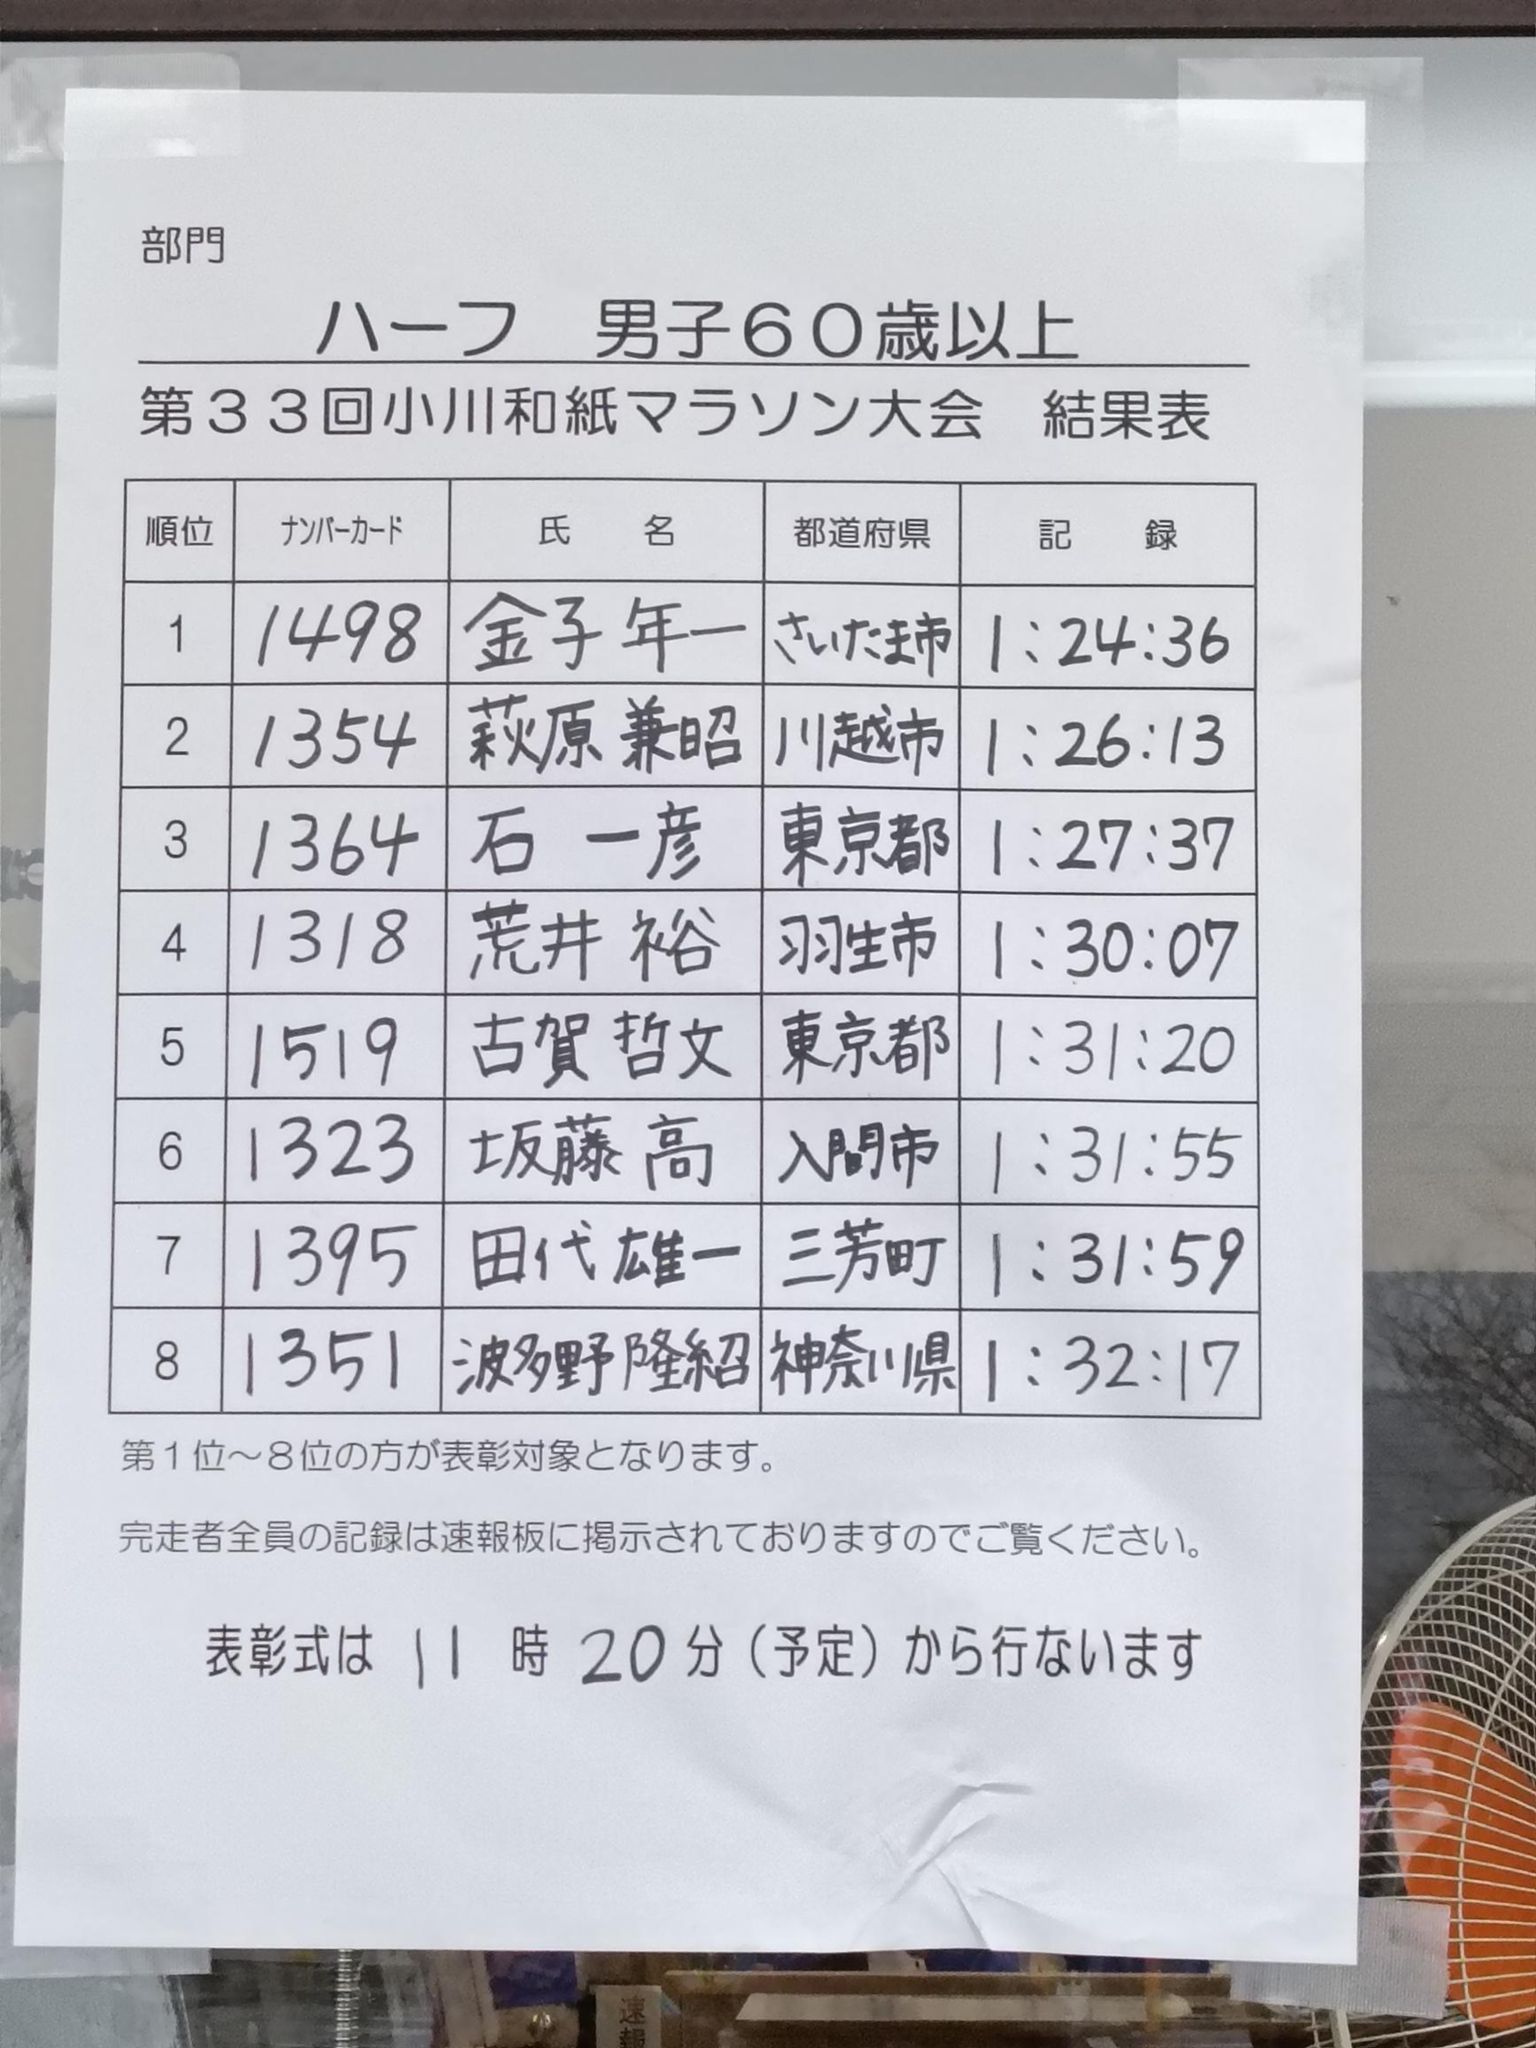 部門
ハーフ　男子６０歳以上
第３３回小川和紙マラソン大会　結果表
順位 ﾅﾝﾊﾞｰｶｰﾄﾞ 氏　名 都道府県 記　録
1 1498 金子 年一 さいたま市 1:24:36
2 1354 萩原 兼昭 川越市 1:26:13
3 1364 石 一彦 東京都 1:27:37
4 1318 荒井 裕 羽生市 1:30:07
5 1519 古賀 哲文 東京都 1:31:20
6 1323 坂藤 高 入間市 1:31:55
7 1395 田代 雄一 三芳町 1:31:59
8 1351 波多野 隆紹 神奈川県 1:32:17
第１位～８位の方が表彰対象となります。
完走者全員の記録は速報板に掲示されておりますのでご覧ください。
表彰式は 11 時 20 分（予定）から行ないます
速報